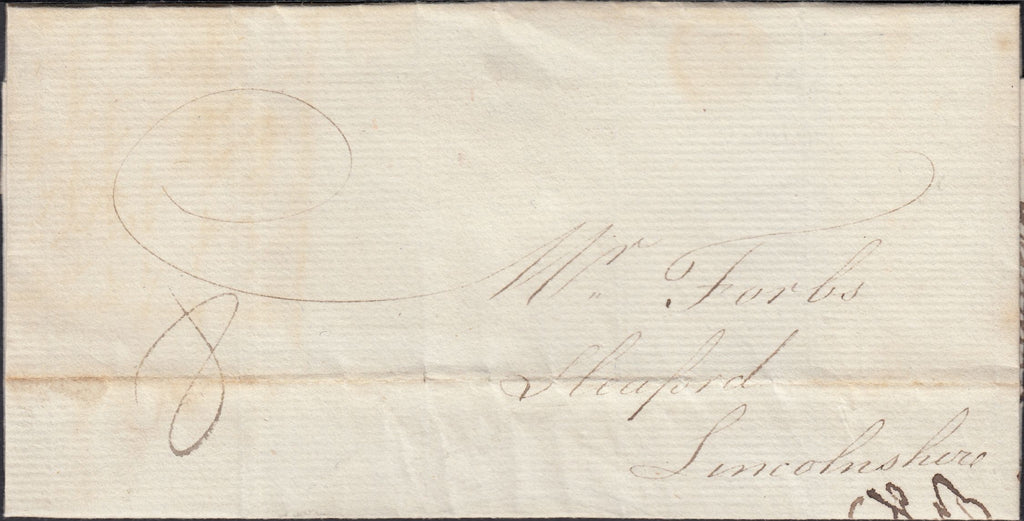 Mr Forbs
Sleaford
Lincolnshire
8